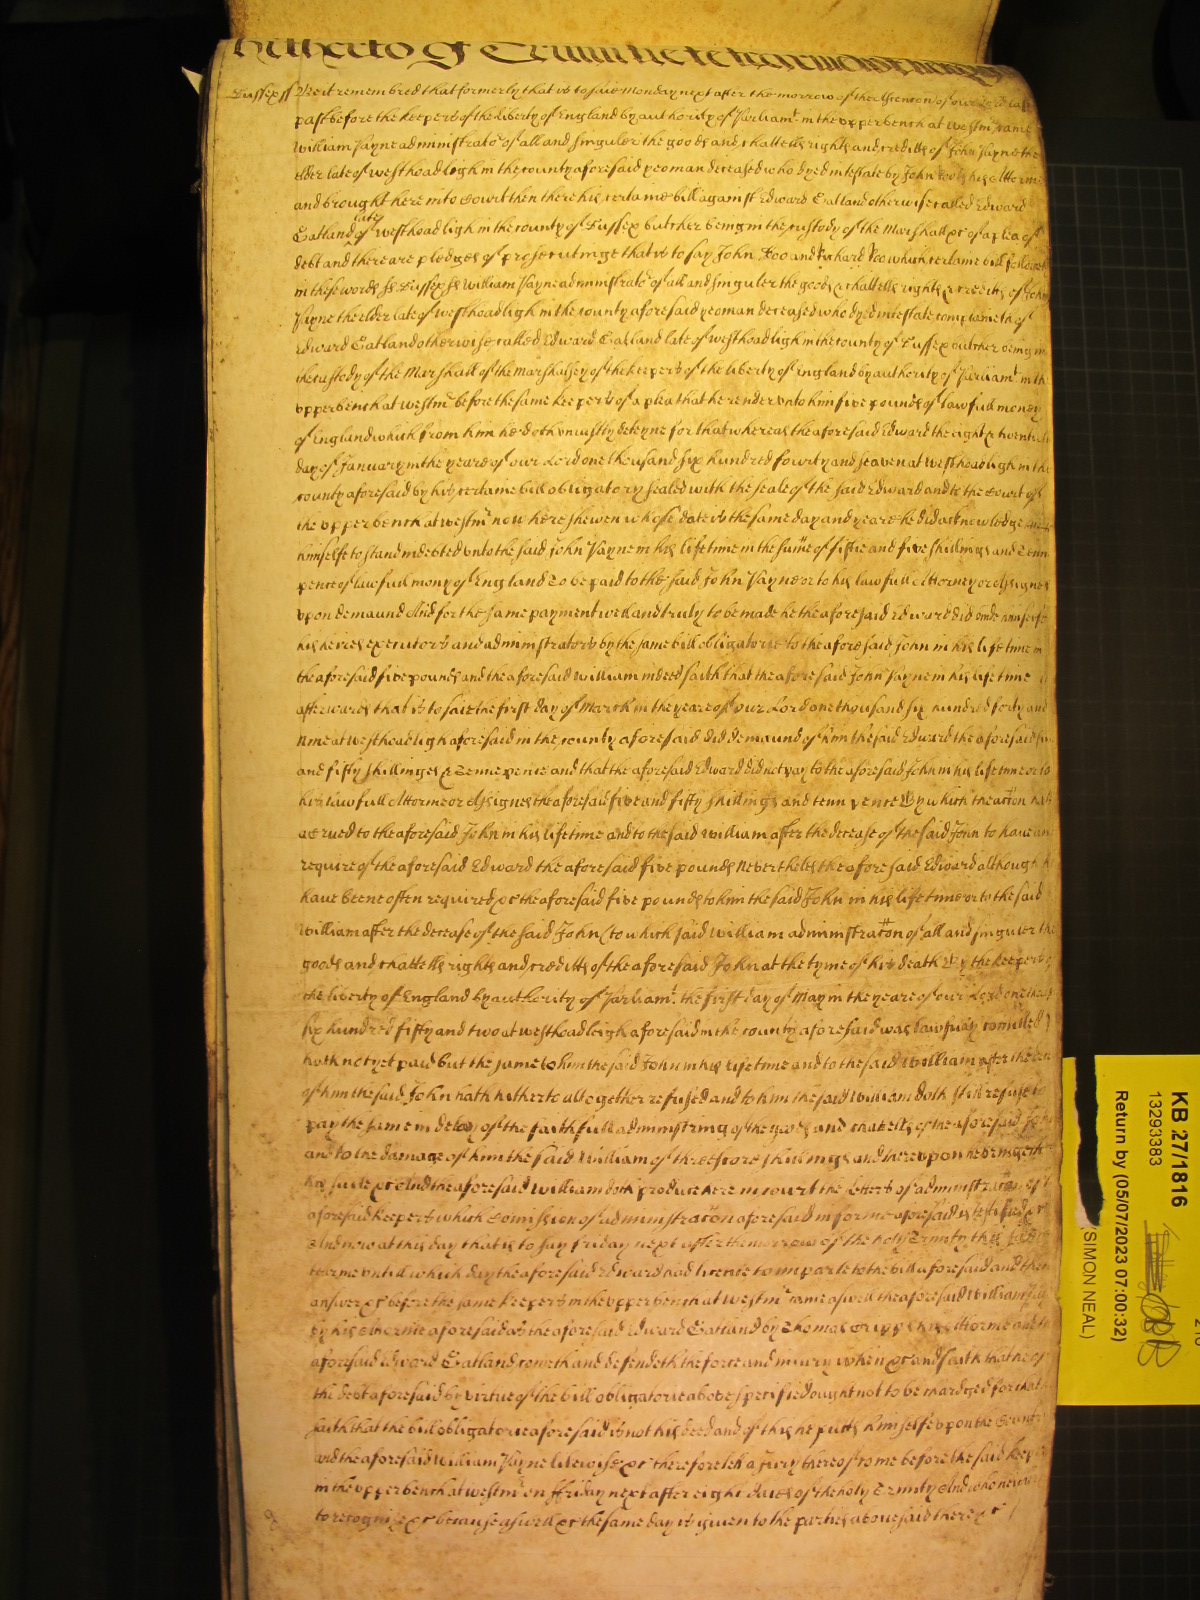 Hitherto of Trinitie te tearme
Sussex ss Be it remembred that formerly that is to saie Monday next after the morrow of the Ascention of our Lord last
past before the keepers of the liberty of England by authority of Parliamt in the upper bench at Westmr came
William Payne administrator of all and singuler the goods and chattells rights and creditts of John Payne the
elder late of westhoadligh in the county aforesaid yeoman deceased who dyed intestate by John his Attorne
and brought here into Court then there his certaine bill against Edward Gatland otherwise called Edward
Gatland late of westhoadligh in the county of Sussex butcher being in the custody of the Marshall &c of a plea of
debt and there are pledges of prosecutinge that is to say John Doo and Richard Roo which certaine bill followeth
in these words ss Sussex ss William Payne administrator of all and singuler the goods & chattells rights & creditts of John
Payne the elder late of westhoadligh in the county aforesaid yeoman deceased who dyed intestate complaineth of
Edward Gatland otherwise called Edward Gatland late of westhoadligh in the county of Sussex butcher being in
the custody of the Marshall of the Marshalsey of the keepers of the liberty of England by authority of Parliamt in the
upper bench at westmr before the same keepers of a plea that he render unto him five pounds of lawfull money
of England which from him he doth uniustly deteyne for that whereas the aforesaid Edward the eight & twentieth
day of January in the yeare of our Lord one thousand six hundred fourty and seaven at westhoadligh in the
county aforesaid by his certaine bill obligatory sealed with the seale of the said Edward and to the Court of
the upper bench at westmr now here shewen whose date is the same day and yeare he did acknowledge
himselfe to stand indebted unto the said John Payne in his life time in the sume of fiftie and five shillings and Tenn
pence of lawfull mony of England To be paid to the said John Payne or to his lawfull Attorney or Assignes
upon demaund And for the same payment well and truly to be made he the aforesaid Edward did binde himselfe
his heires executors and administrators by the same bill obligatorie to the aforesaid John in his life time in
the aforesaid five pounds and the aforesaid William indeed saith that the aforesaid John Payne in his life time
afterwards that is to saie the first day of March in the yeare of our Lord one thousand six hundred forty and
Nine at westhoadligh aforesaid in the county aforesaid did demaund of him the said Edward the aforesaid five
and fifty shillinges & Tenne pence and that the aforesaid Edward did not pay to the aforesaid John in his life time or to
his lawfull Attorne or Assignes the aforesaid five and fifty shillings and tenn pence By which the action hath
acrued to the aforesaid John in his life time and to the said William after the decease of the said John to have and
require of the aforesaid Edward the aforesaid five pounds Neverthelesse the aforesaid Edward although he
have beene often required &c the aforesaid five pounds to him the said John in his life time or to the said
William after the decease of the said John (to which said William administracon of all and singuler the
goods and chattells rights and creditts of the aforesaid John at the tyme of his death By the keepers of
the liberty of England by authority of Parliamt. the first day of May in the yeare of our Lord one thousand
six hundred fifty and two at westhoadleigh aforesaid in the county aforesaid was lawfully comitted )
hath not yet paid but the same to him the said John in his life time and to the said William after the decease
of him the said John hath hitherto altogether refused and to him the said William doth still refuse to
pay the same in delay of the faithfull administring of the goods and chattells of the aforesaid John
and to the damage of him the said William of threescore shillings and thereupon he bringeth
his suite &c And the aforesaid William doth produce here in court the letters of administracon of the
aforesaid keepers which Comission of administracon aforesaid in forme aforesaid is testified &c
And now at this day that is to say friday next after the morrow of the holy Trinity this same
tearme untill which day the aforesaid Edward had licence to imparle to the bill aforesaid and then
answer &c before the same keepers in the upper bench at westmr came aswell the aforesaid William
by his Attornie aforesaid as the aforesaid Edward Gatland by Thomas Cripps his Attorne and the
aforesaid Edward Gatland cometh and defendeth the force and iniury when &c and saith that he of
the debt aforesaid by virtue of the bill obligatorie above specified ought not to be chardged for that he
saith that the bill obligatorie aforesaid is not his deed and of this he putts himselfe upon the Countrie
and the aforesaid William Payne likewise &c therefore lett a Jury thereof come before the said keepers
in the upper bench at westmr on ffriday next after eight daies of the holy Trinity And who neither
to recognize &c because aswell &c the same day is given to the parties abovesaid there &c
KB 27/1816
13293383
Return by (05/07/2023 07:00:32)
(SIMON NEAL)